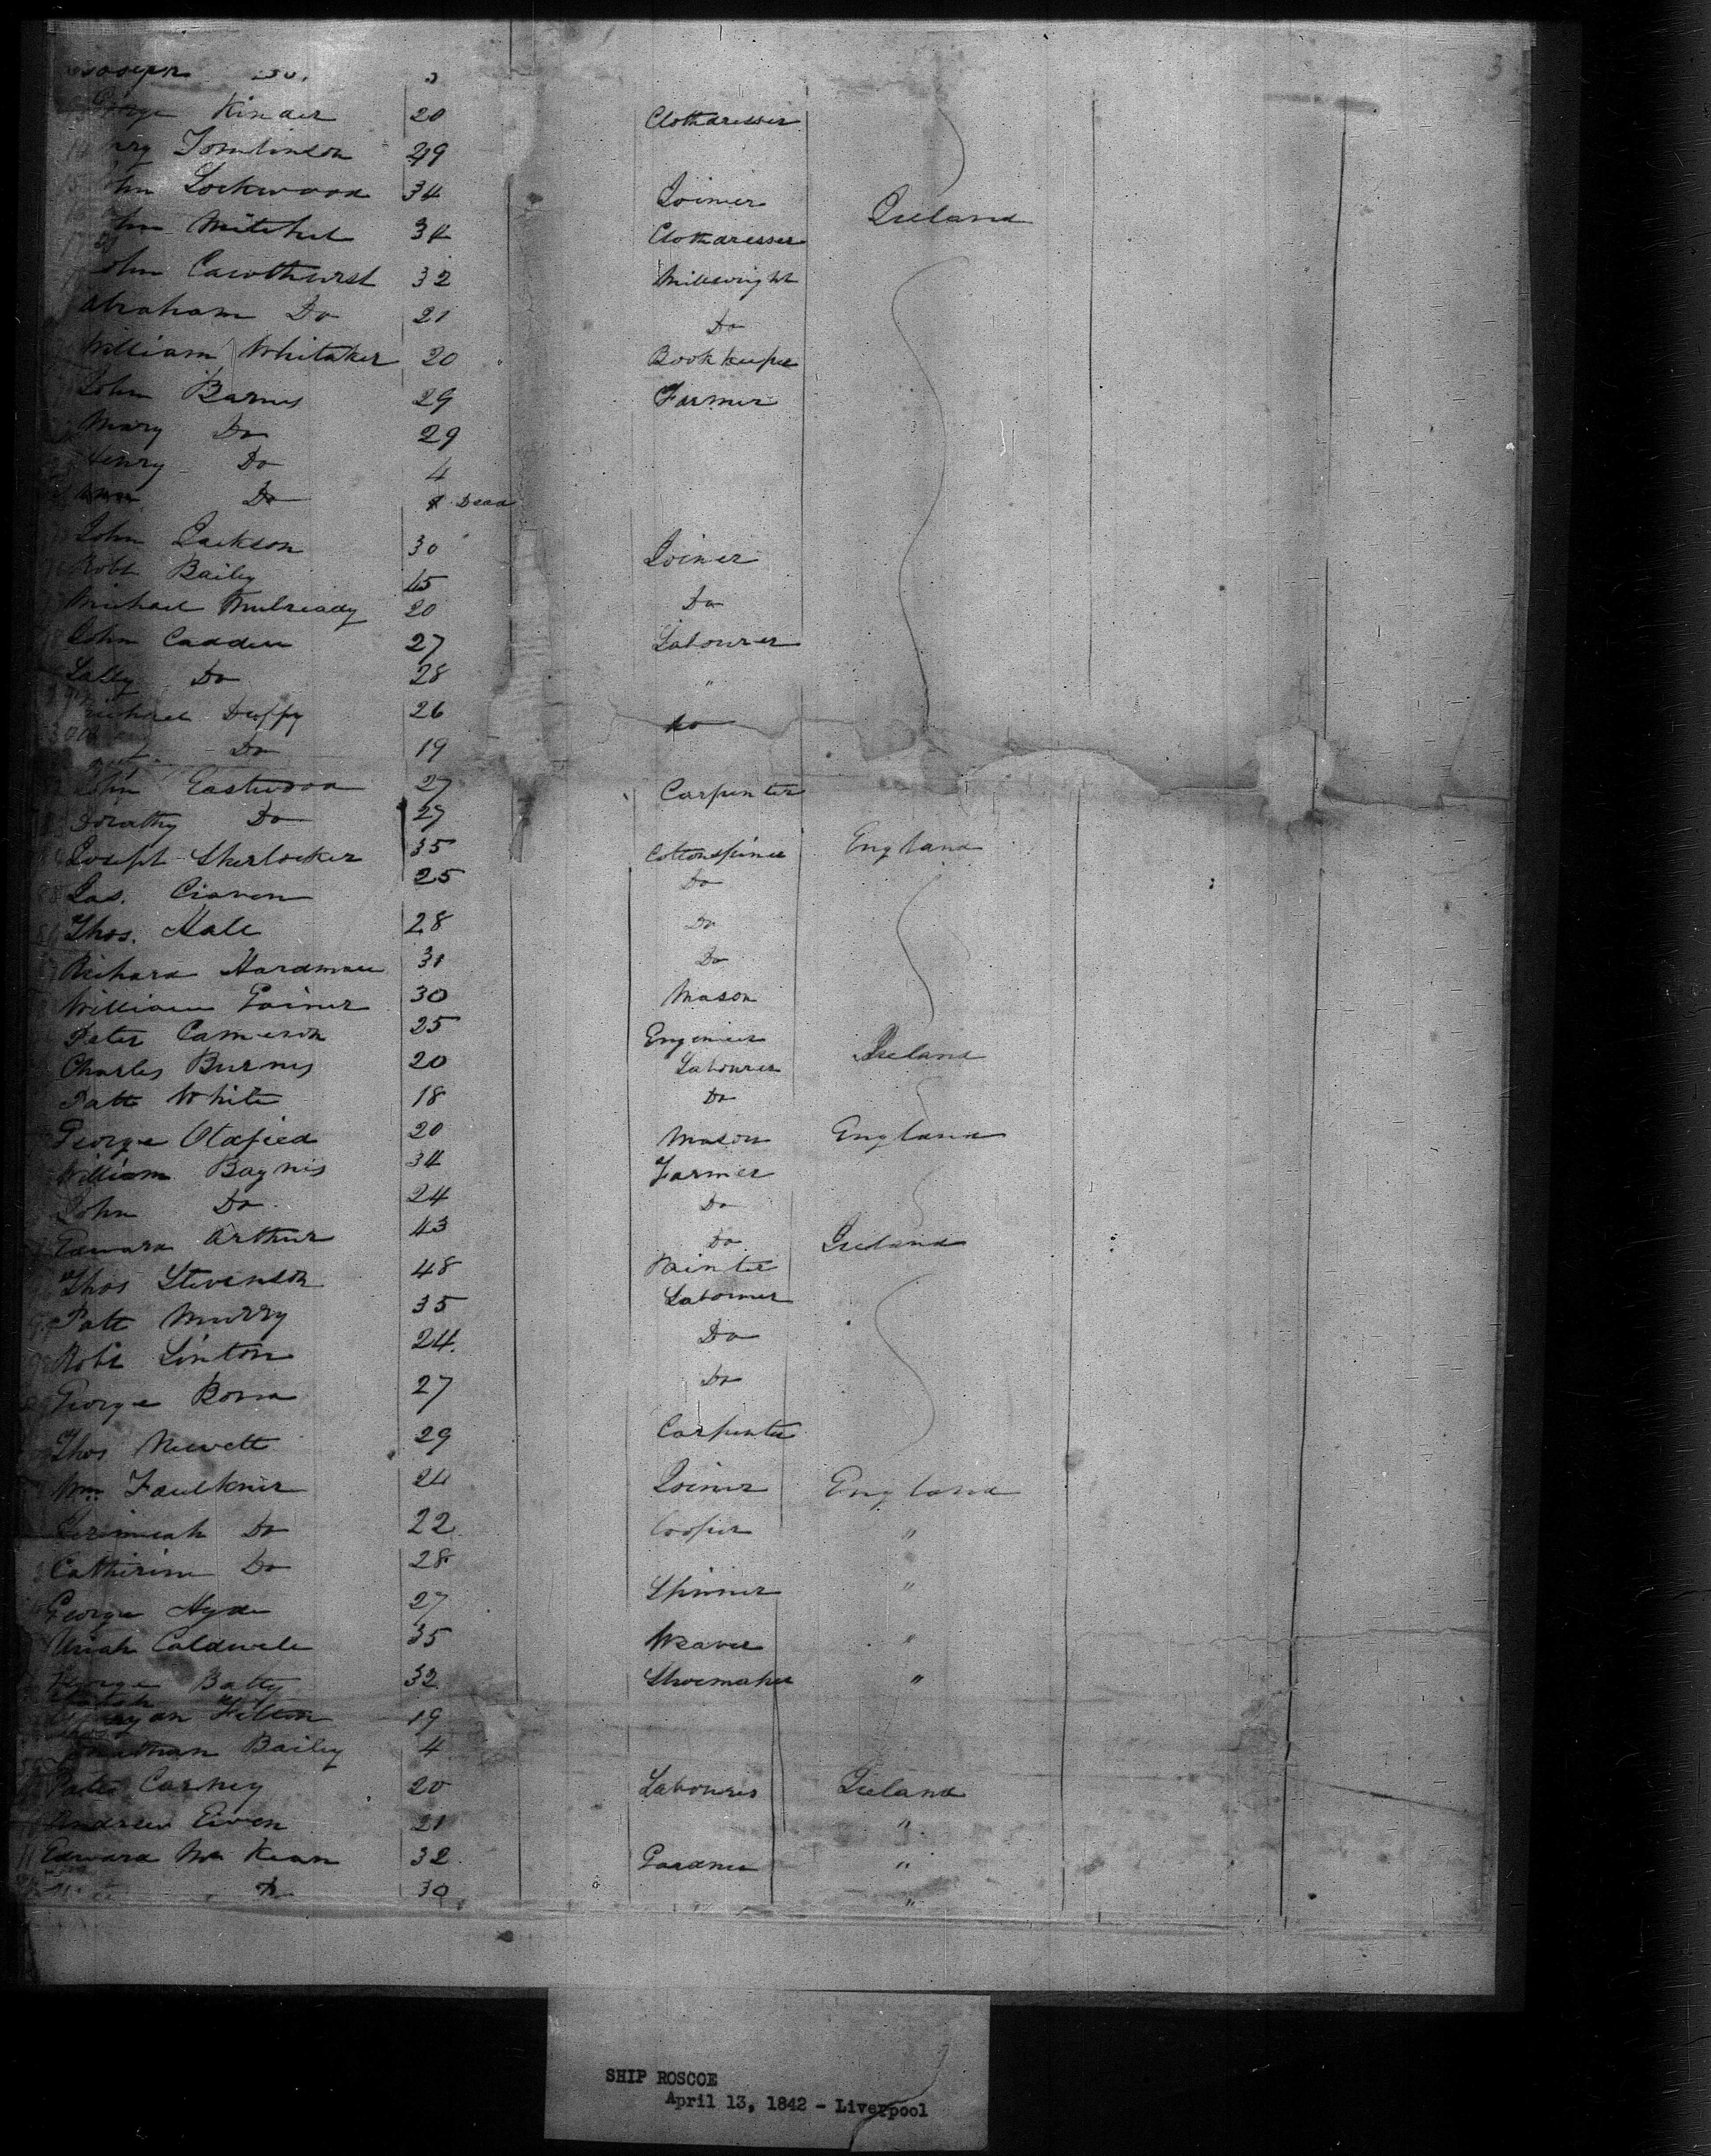 3
Joseph Do.
George Kinder 20 Clothdresser
Tomlinson 29
John Lockwood 34 Joiner Ireland
John Mitchel 34 Clothdresser
John Cawthurst 32 Millwright
Abraham Do 21 Do
William Whitaker 20 Book keeper
John Barnes 29 Farmer
Mary Do 29
Henry Do 4
Ann Do Dead
John Jackson 30 Joiner
Robt Bailey 45
Michael Mulready 20 Do
John Cadden 27 Labourer
Sally Do 28 "
Michael Duffy 26 Do
Do 19
John Eastwood 27 Carpenter
Dorathy Do 27
Joseph Sherlocker 35 Cottonspiner England
Jas. Craven 25 Do
Thos. Hale 28 Do
Richard Hardman 31 Do
William Gainer 30 Mason
Peter Cameron 25 Engineer Ireland
Charles Burnes 20 Labourer
Patt White 18 Do
George Oldfied 20 Mason England
William Baynis 34 Farmer
John Do 24 Do
Edward Arthur 43 Do Ireland
Thos Stevenson 48 Painter
Patt Murry 35 Labourer
Robt Linton 24. Do
George 27 Do
Thos Newett 29 Carpenter
Wm Faulkner 24 Joiner England
Jerimiah Do 22 Cooper "
Catherine Do 28
George Hyde 27 Spinner "
Uriah Caldwell 35 Weaver "
George Batty 32 Shoemaker "
19
Jonathan Bailey 4
Patt Carney 20 Labourers Ireland
Andrew Given 21 "
11 Edward Mc Kean 32 Gardner "
Do 30 "
SHIP ROSCOE
April 13, 1842 - Liverpool